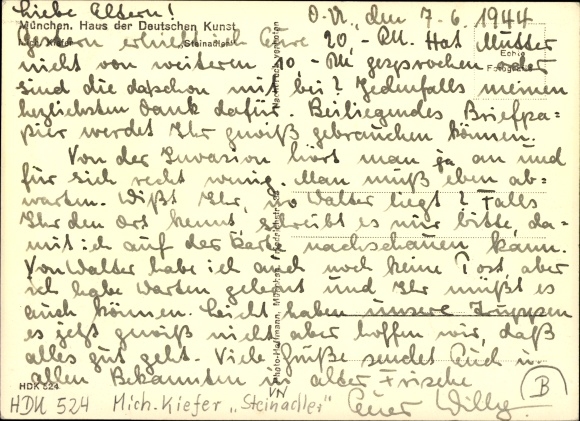 Liebe Eltern!
München. Haus der Deutschen Kunst
O.U., den 7.6.1944
Mich. Kiefer „Steinadler"
Gestern erhielt ich Eure 20,- RM. Hat Mutter
nicht von weiteren 10,- RM gesprochen oder
sind die da schon mit bei? Jedenfalls meinen
herzlichsten Dank dafür. Beiliegendes Briefpa=
pier werdet Ihr gewiß gebrauchen können.
Von der Invasion hört man ja an und
für sich recht wenig. Man muß eben ab=
warten. Wißt Ihr, wo Walter liegt? Falls
Ihr den Ort kennt, schreibt es mir bitte, da=
mit ich auf der Karte nachschauen kann.
Von Walter habe ich auch noch keine Post, aber
ich habe Warten gelernt und Ihr müßt es
auch können. Leicht haben unsere Truppen
es jetzt gewiß nicht aber hoffen wir, daß
alles gut geht. Viele Grüße sendet Euch u.
allen Bekannten in alter Frische
Euer Willy.
Echte
Fotografie
Nachdruck verboten
Photo-Hoffmann, München, Friedrichstr.
HDK 524
VN
B
HDK 524 Mich. Kiefer „Steinadler"